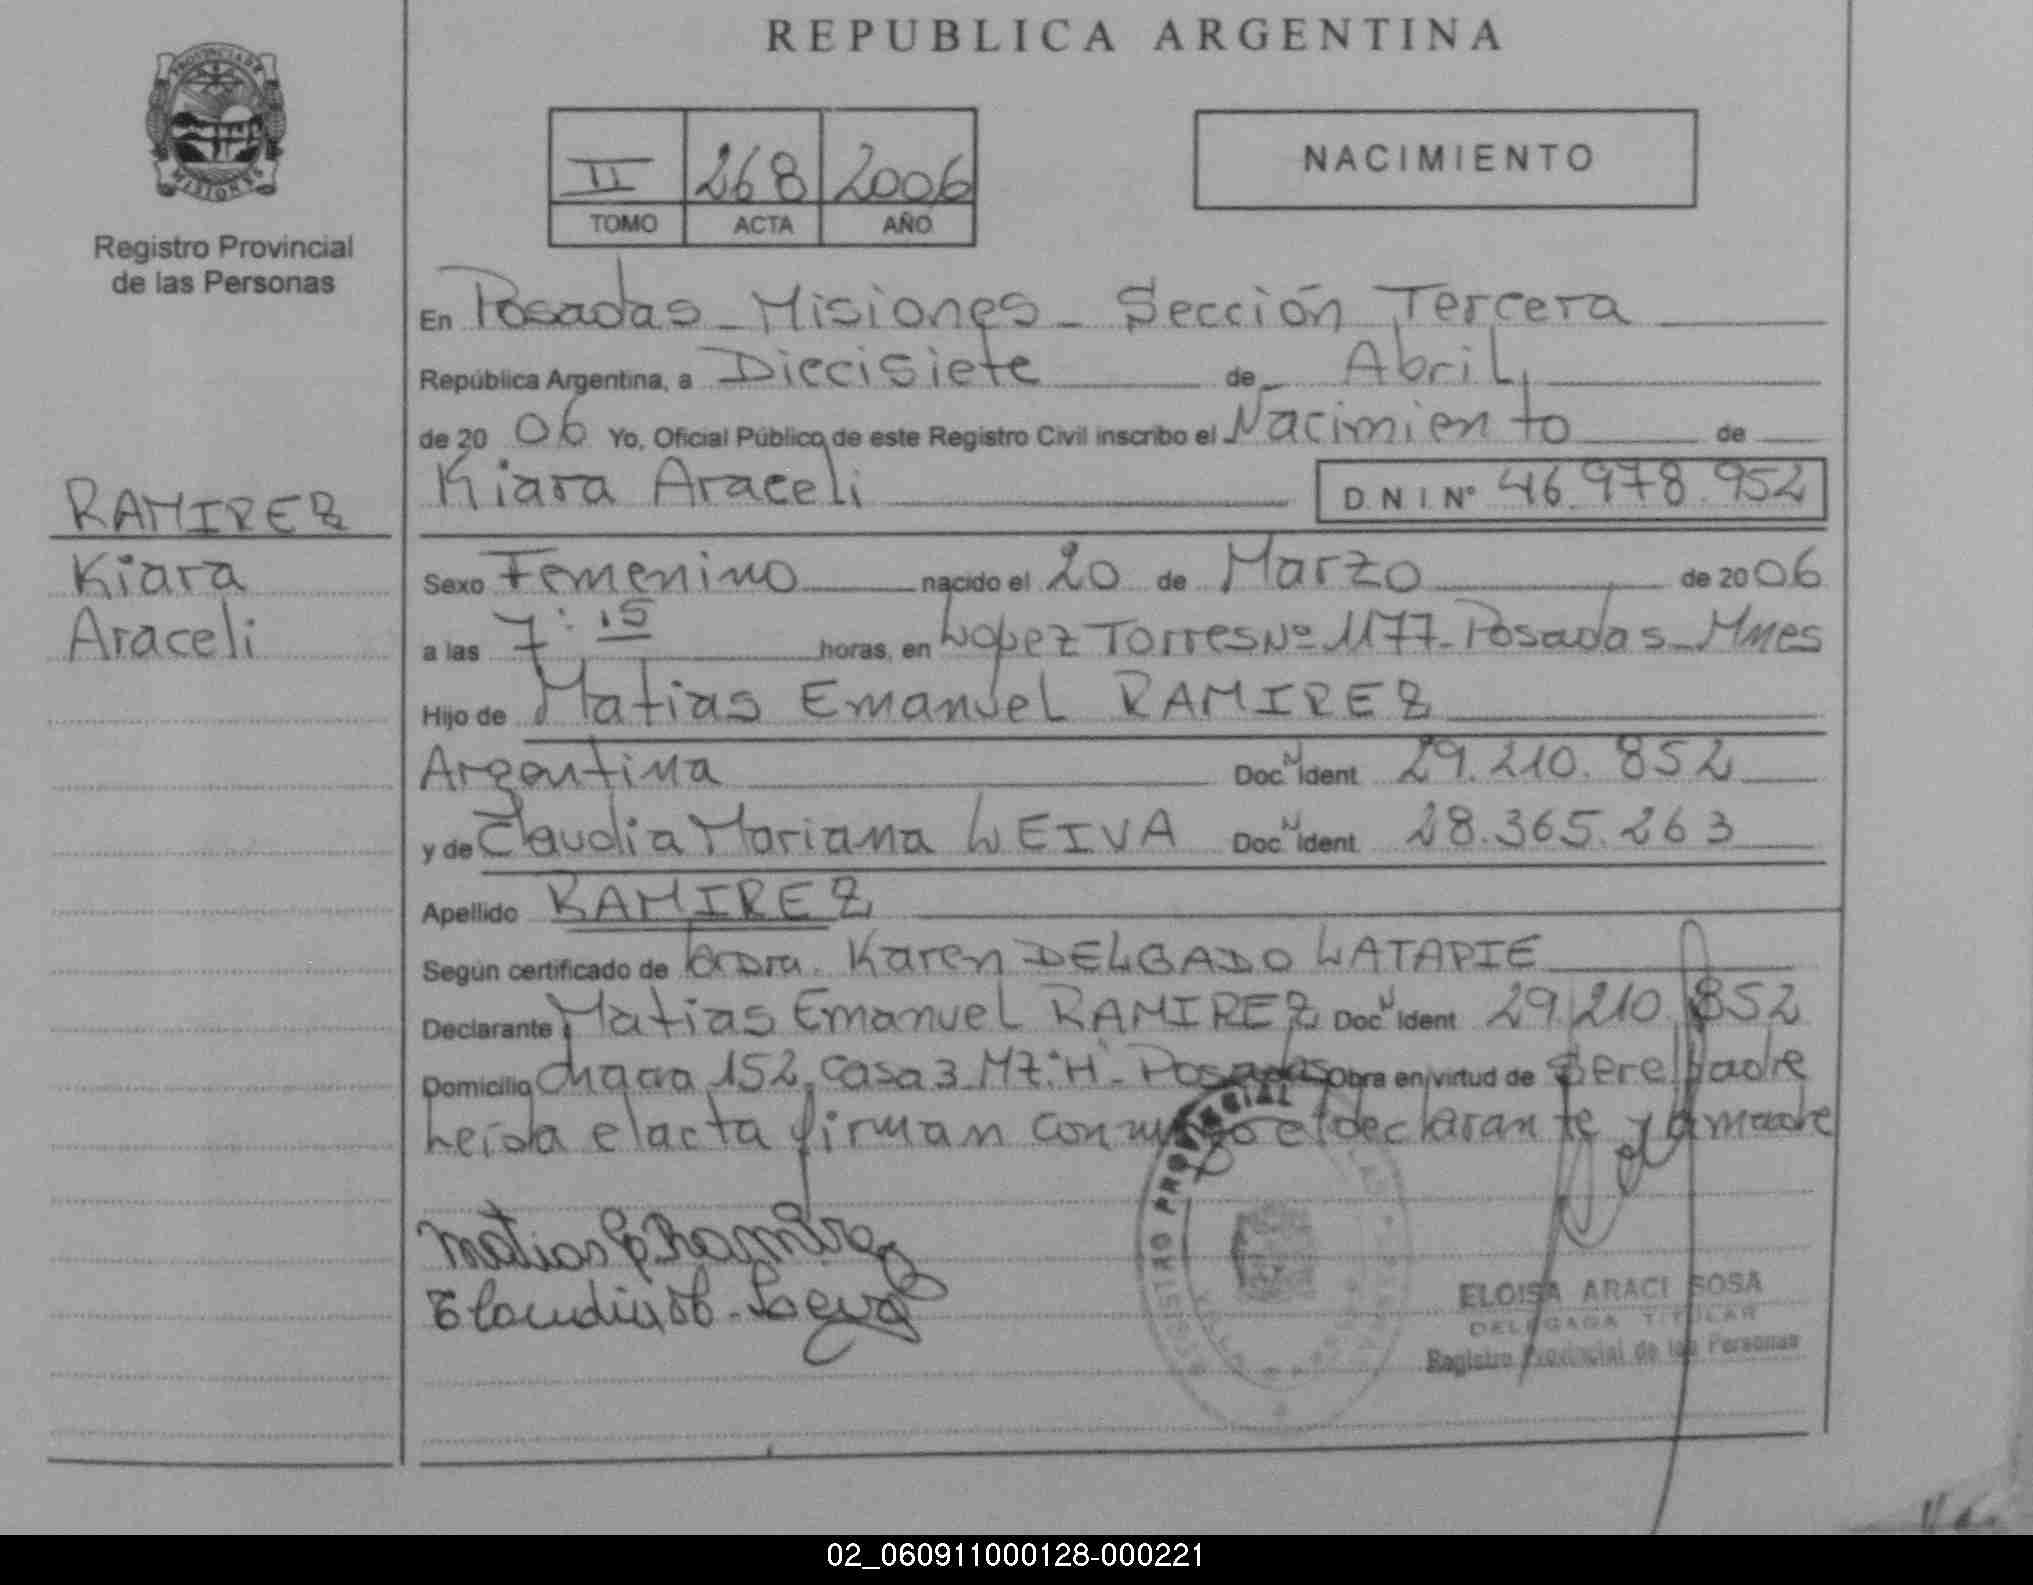 REPUBLICA ARGENTINA
PROVINCIA DE
MISIONES
Registro Provincial
de las Personas
II 268 2006
TOMO ACTA AÑO
NACIMIENTO
En Posadas - Misiones - Sección Tercera
República Argentina, a Diecisiete de Abril,
de 20 06 Yo, Oficial Público de este Registro Civil inscribo el Nacimiento de
Kiara Araceli D.N.I. Nº 46.978.952
RAMIREZ
Kiara
Araceli
Sexo Femenino nacido el 20 de Marzo de 20 06
a las 7:15 horas, en Lopez Torres Nº 1177 - Posadas - Mnes
Hijo de Matias Emanuel RAMIREZ
Argentina Doc. N Ident 29.210.852
y de Claudia Mariana LEIVA Doc. N Ident 28.365.263
Apellido RAMIREZ
Según certificado de Dra. Karen DELGADO LATAPIE
Declarante Matias Emanuel RAMIREZ Doc. N Ident 29.210.852
Domicilio chacra 152, casa 3 Mz. "H" - Posadas Obra en virtud de ser el padre
Leída el acta firman conmigo el declarante y la madre
Matias E Ramirez
Claudia M. Leiva
REGISTRO PROVINCIAL
ELOISA ARACI SOSA
DELEGADA TITULAR
Registro Provincial de las Personas
02_060911000128-000221